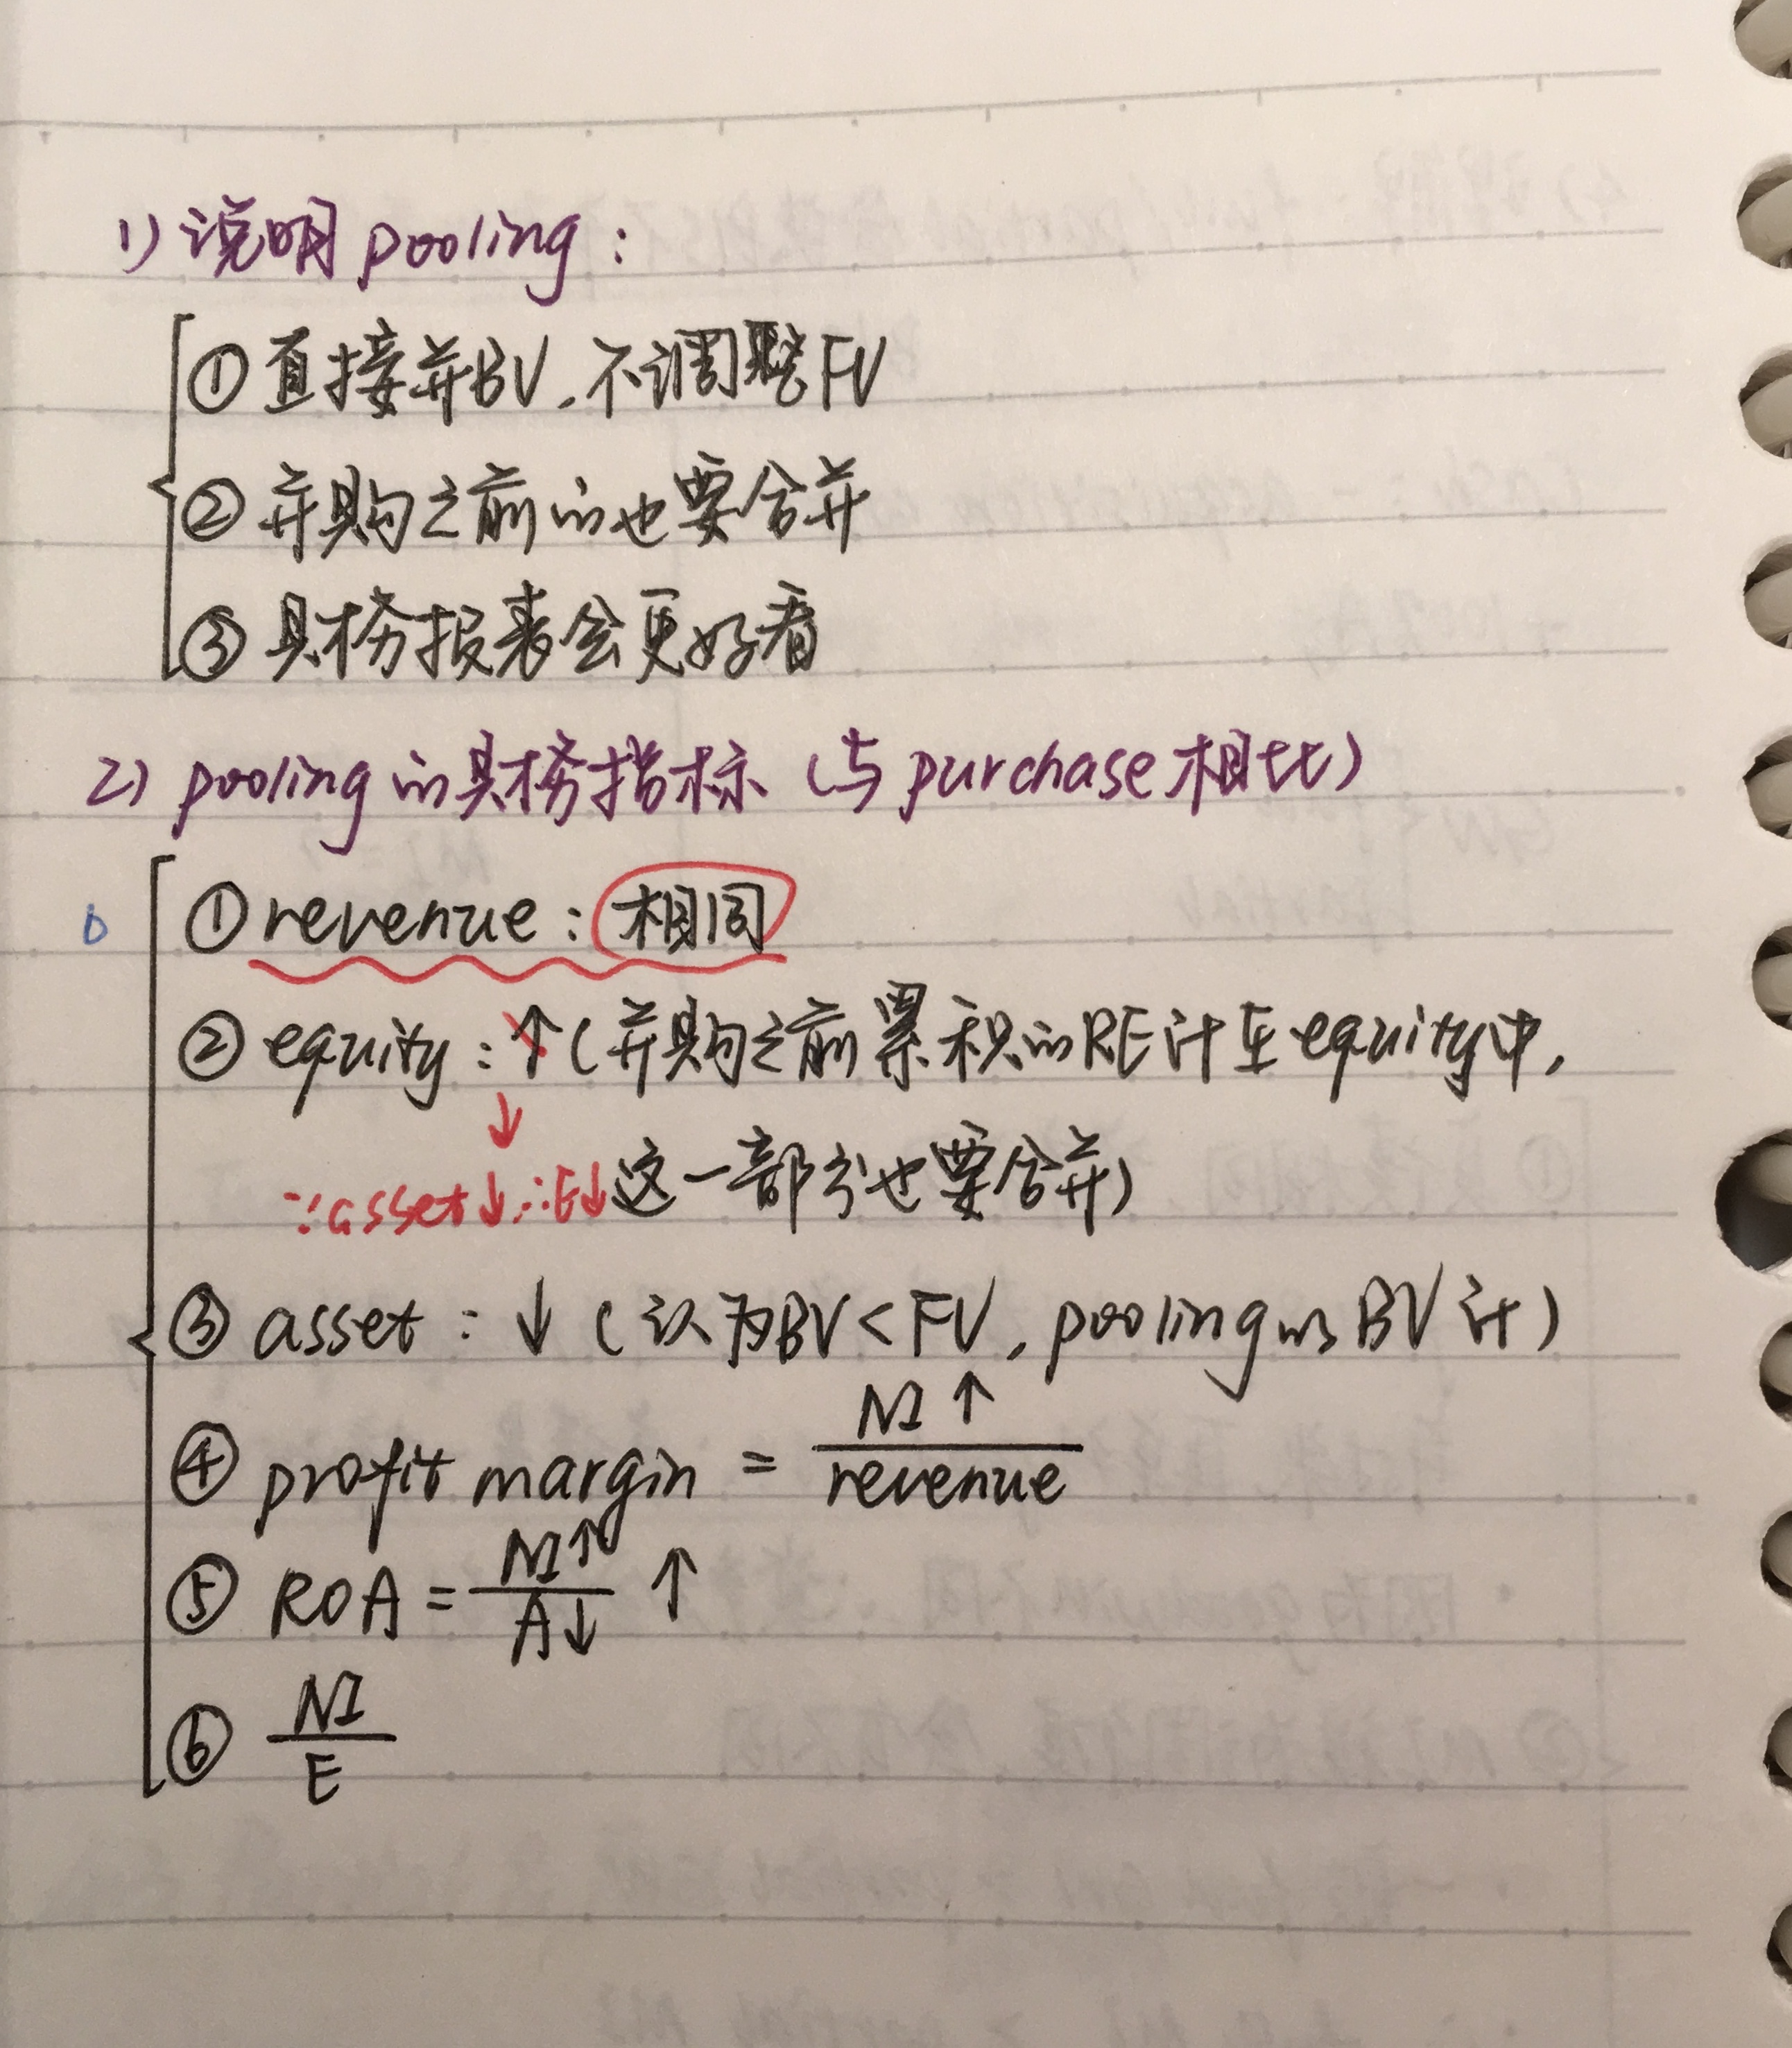 1) 说明 pooling：
① 直接并BV，不调整FV
② 并购之前的也要合并
③ 财务报表会更好看
2) pooling的财务指标（与purchase相比）
① revenue：相同
② equity：↑（并购之前累积的RE计至equity中，
↓
∵asset↓∴E↓ 这一部分也要合并）
③ asset：↓（认为BV<FV，pooling以BV计）
④ profit margin = NI↑ / revenue
⑤ ROA = NI↑ / A↓ ↑
⑥ NI / E